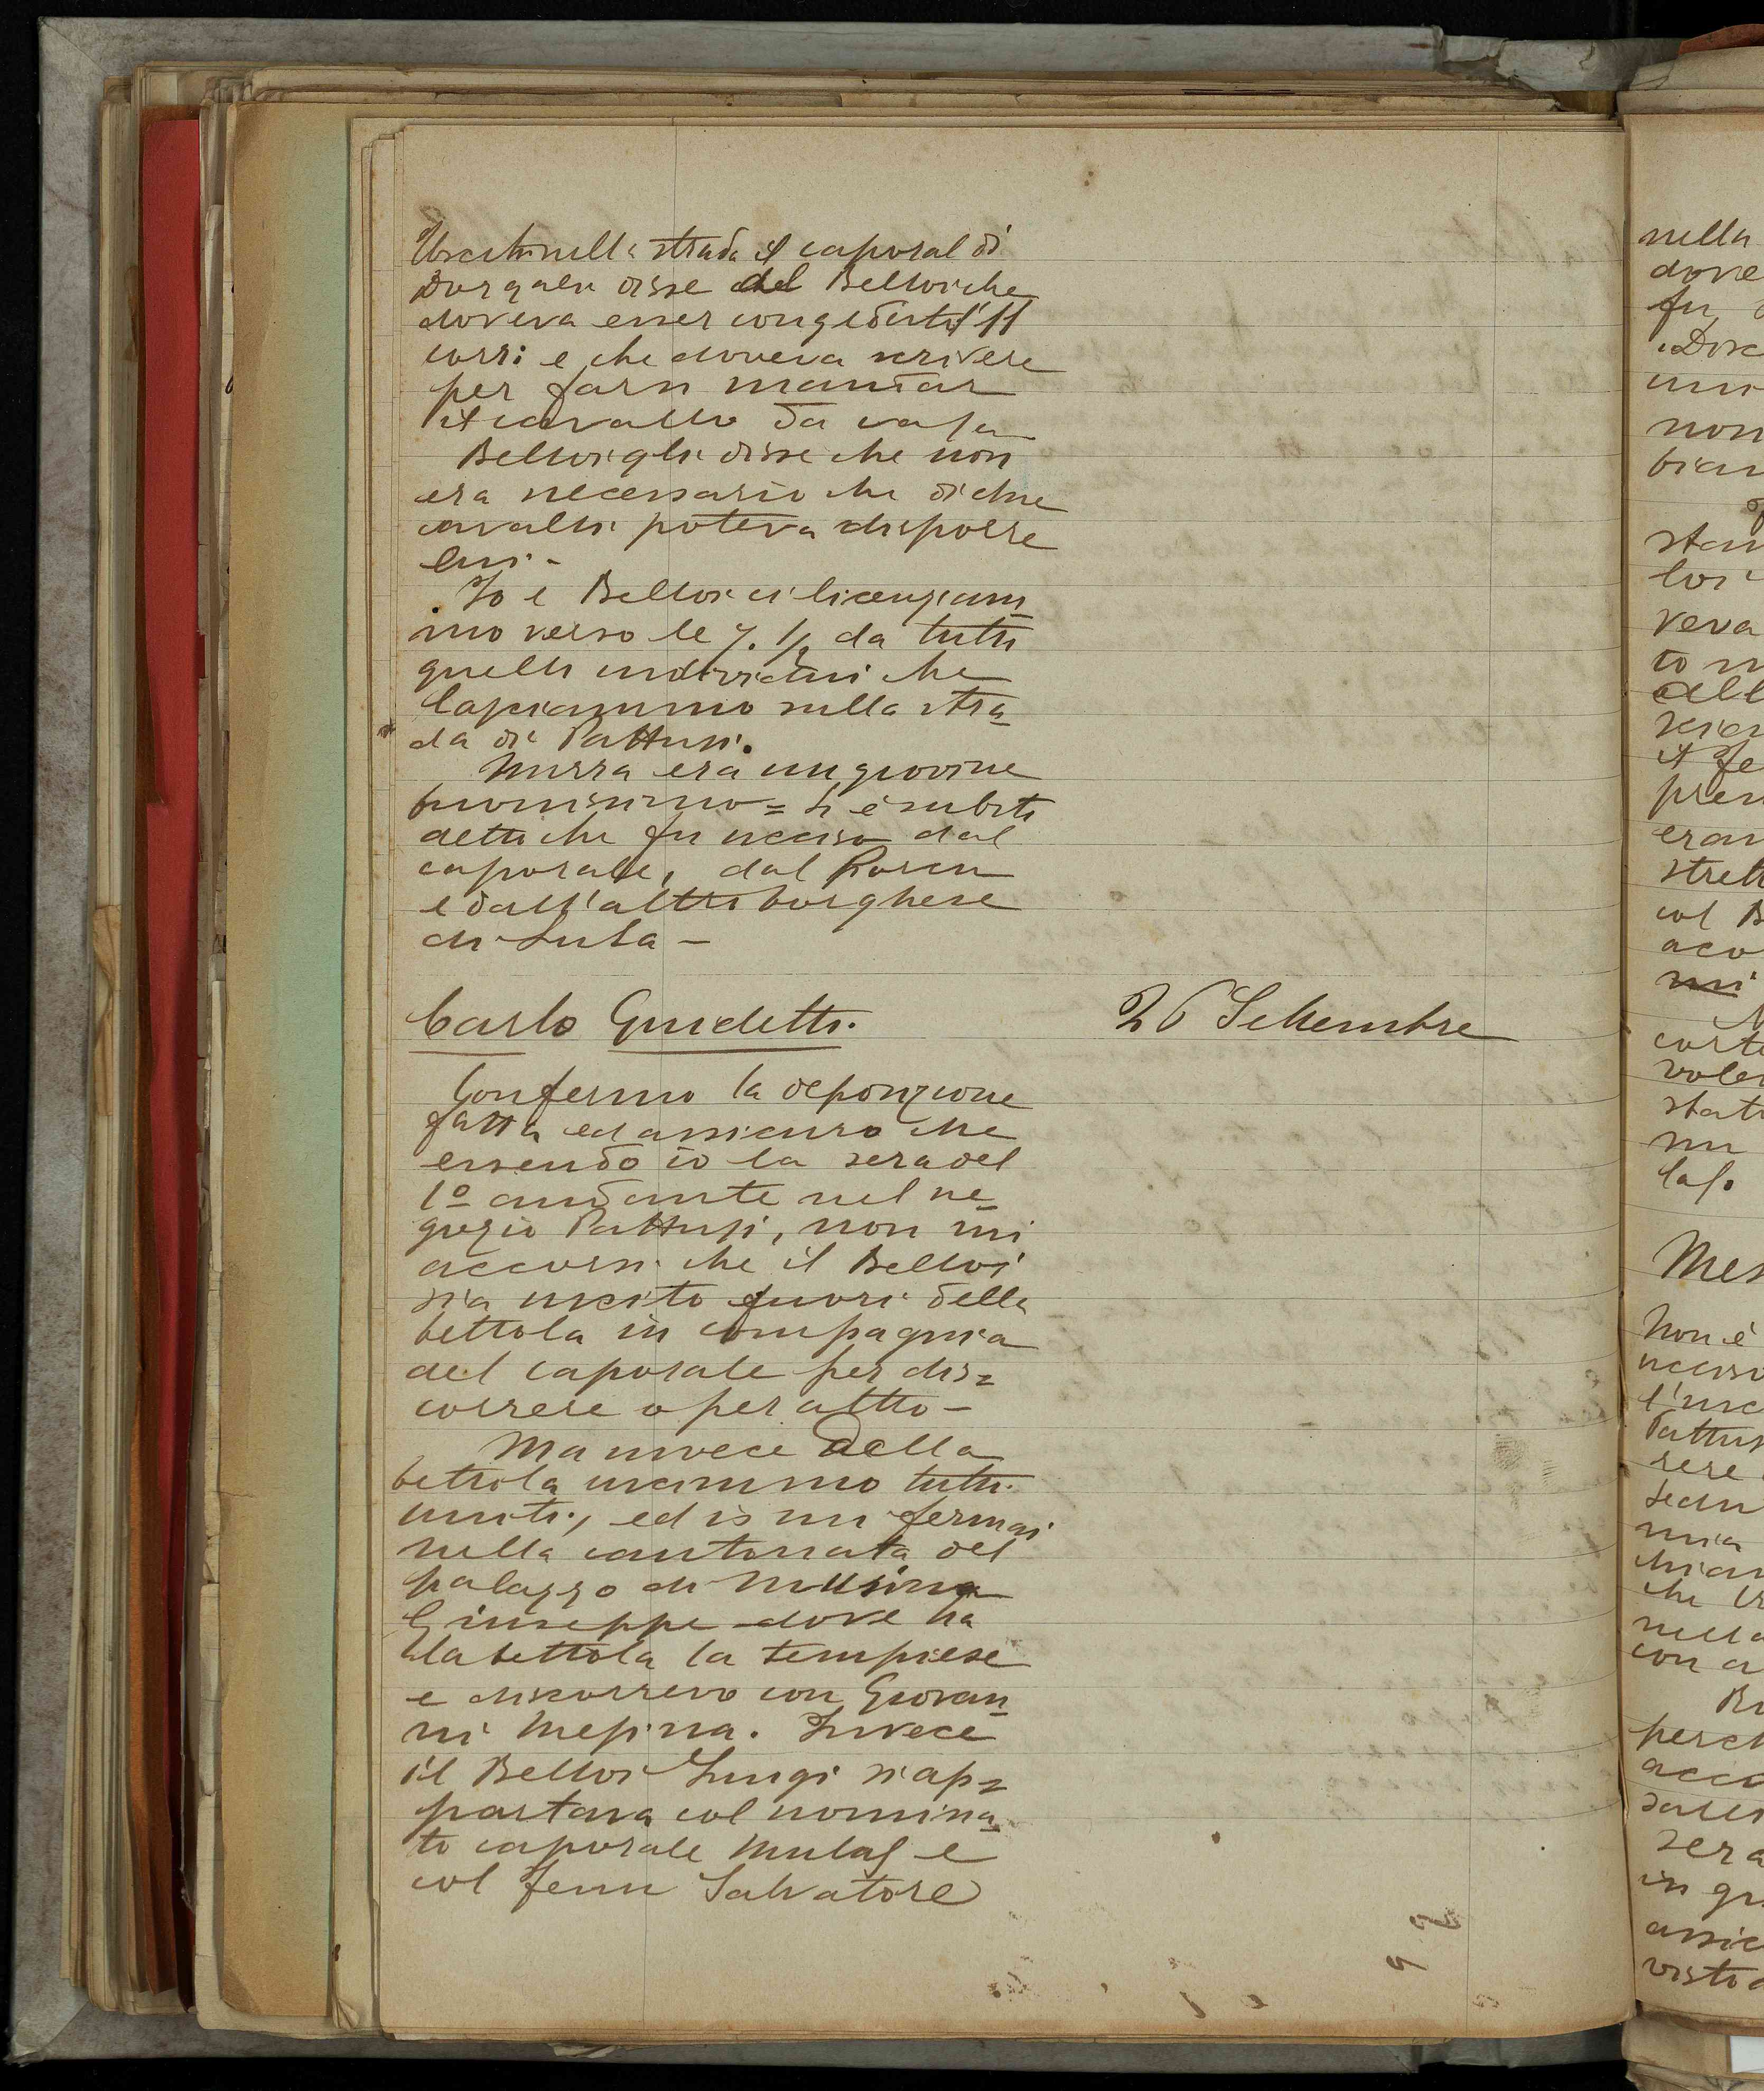 Usciti nella strada il caporal di
Dorgali disse al Belloi che
doveva esser congedato l'11
corr: e che doveva scrivere
per farsi mandar
il cavallo da casa
Belloi gli disse che non
era necessario che di due
cavalli poteva disporre
lui -
Io e Belloi ci licenziam
mo verso le 7. 1/2 da tutti
quelli individui che
lasciammo nella stra
da di Pattusi.
Murra era un giovine
buonissimo = Si è subito
detto che fu ucciso dal
caporale, dal Porcu
e dall'altro borghese
di Lula -
Carlo Guidetti.
26 Settembre
Confermo la deposizione
fatta ed assicuro che
essendo io la sera del
1º andante nel ne
gozio Pattusi, non mi
accorsi che il Belloi
sia uscito fuori della
bettola in compagnia
del caporale per dis=
correre o per altro -
Ma invece della
bettola uscimmo tutti
uniti, ed io mi fermai
nella cantonata del
palazzo di Musina
Giuseppe dove ha
la bettola la tempiese
e discorrevo con Giovan
ni Mesina. Invece
il Belloi Luigi si ap=
partava col nomina
to caporale Mulas e
col Fenu Salvatore
nella
dove
fu
non
stan
loi
veva
to
il Fe
pres
eran
stret
col B
mi
corte
voler
stat
Mes
Non è
ucciso
l'usc
Pattus
sere
mia
che
nella
con
perch
sera
in
assic
visto